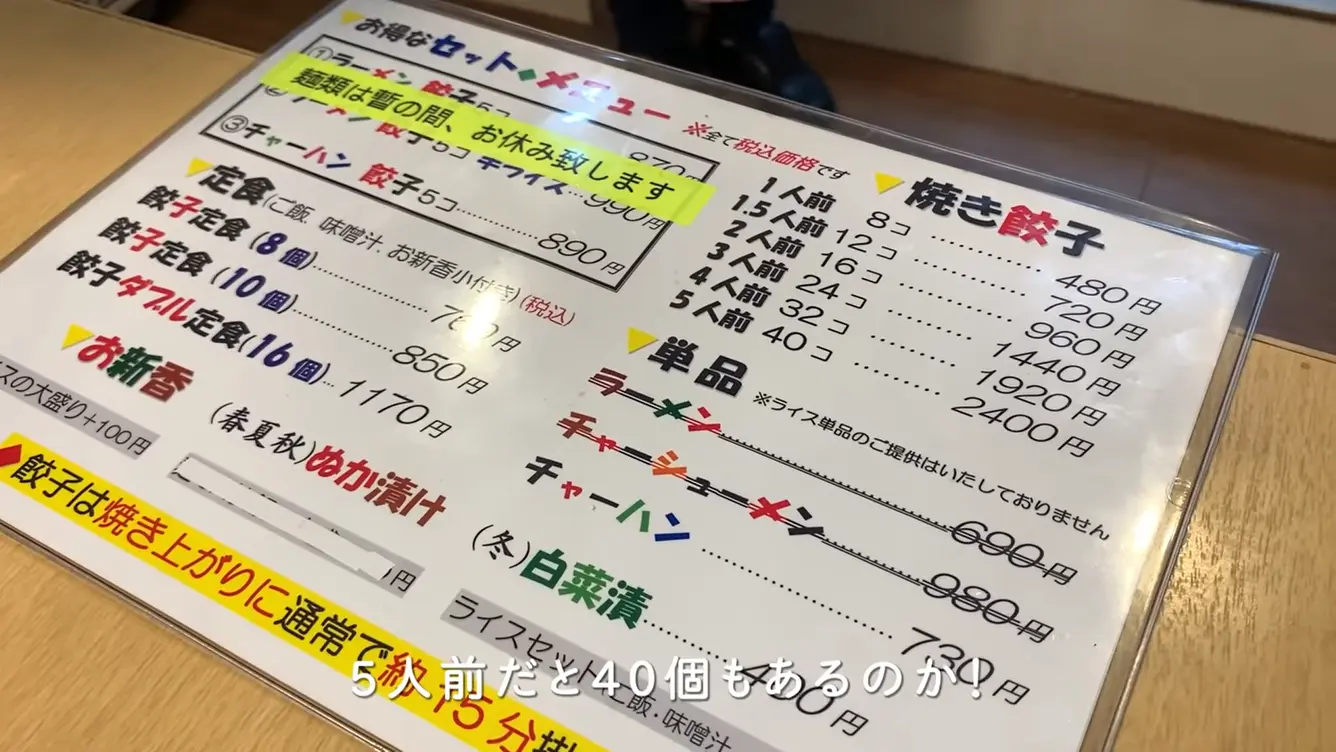 お得なセット◆メニュー
※全て税込価格です
①ラーメン 餃子5コ
870
麺類は暫の間、お休み致します
餃子5コ 半ライス…990円
③チャーハン 餃子5コ………890円
定食(ご飯 味噌汁 お新香小付き)(税込)
餃子定食(8個)………円
餃子定食(10個)………850円
餃子ダブル定食(16個)…1170円
お新香
イスの大盛り+100円
(春夏秋)ぬか漬け
円
(冬)白菜漬………円
◆餃子は焼き上がりに通常で約15分掛
ライスセット ご飯・味噌汁
焼き餃子
1人前 8コ………480円
1.5人前 12コ………720円
2人前 16コ………960円
3人前 24コ………1440円
4人前 32コ………1920円
5人前 40コ………2400円
単品
※ライス単品のご提供はいたしておりません
ラーメン………690円
チャーシューメン………980円
チャーハン………730円
5人前だと40個もあるのか!